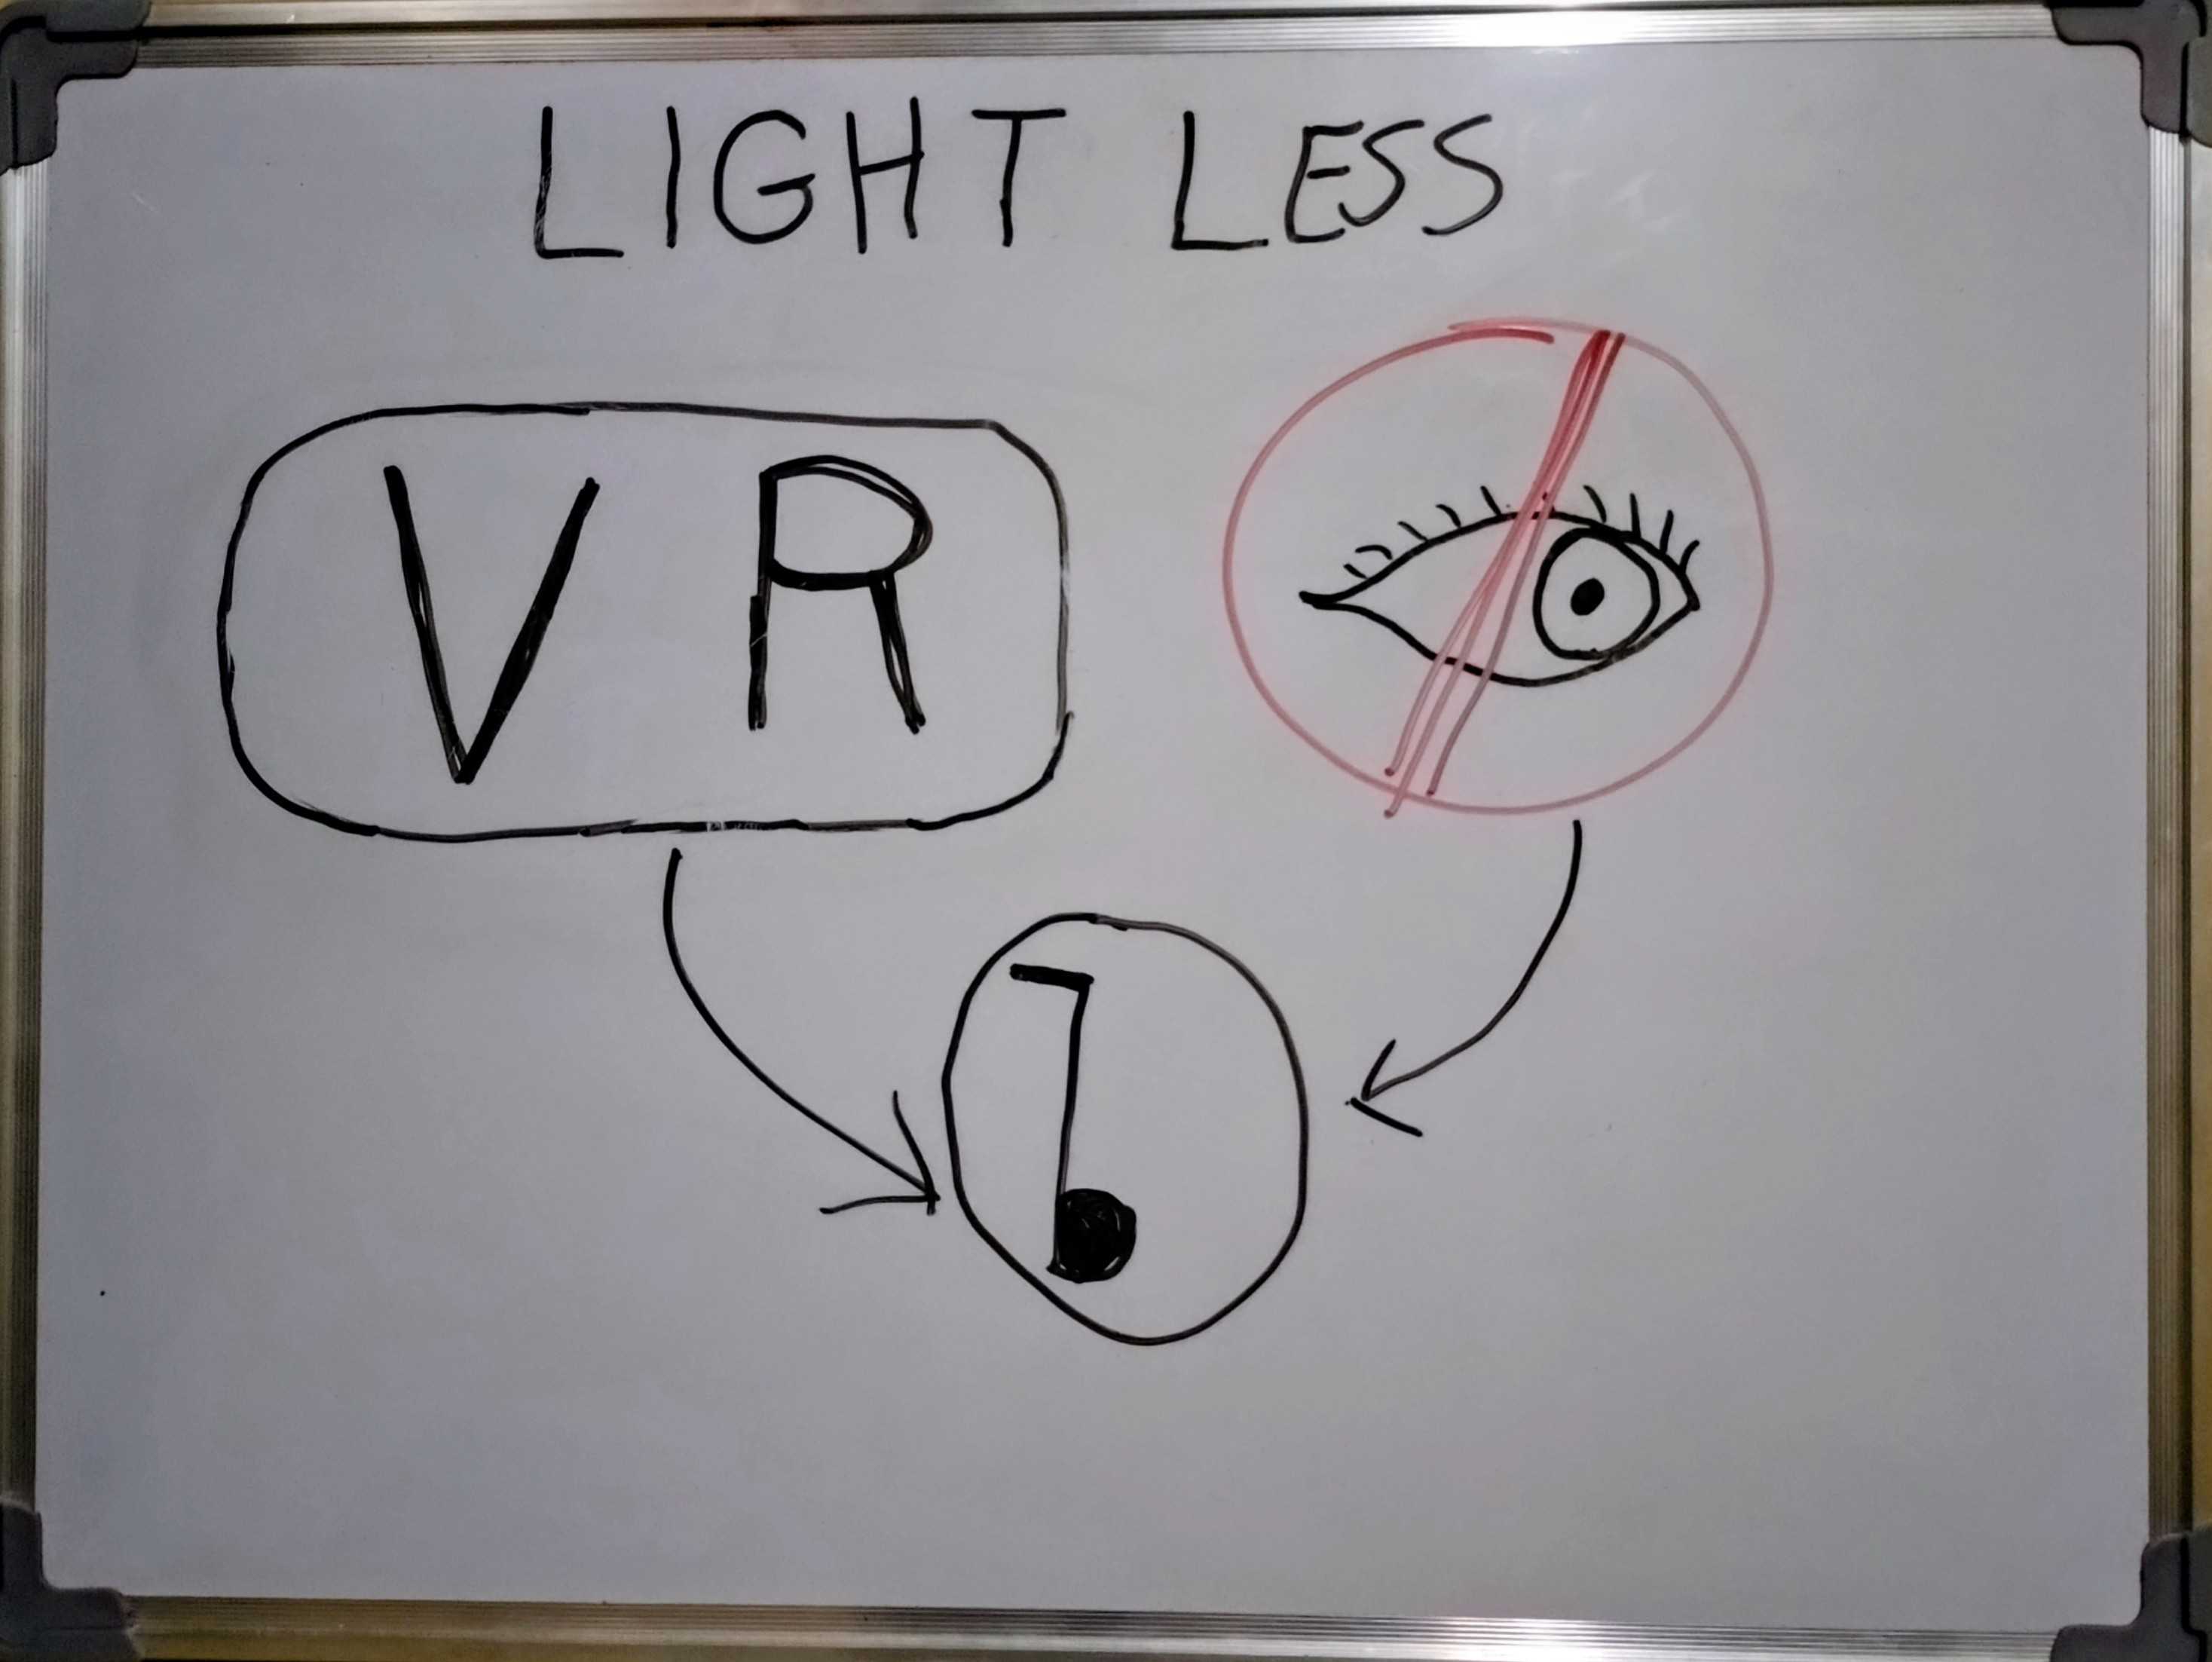 LIGHT LESS
VR